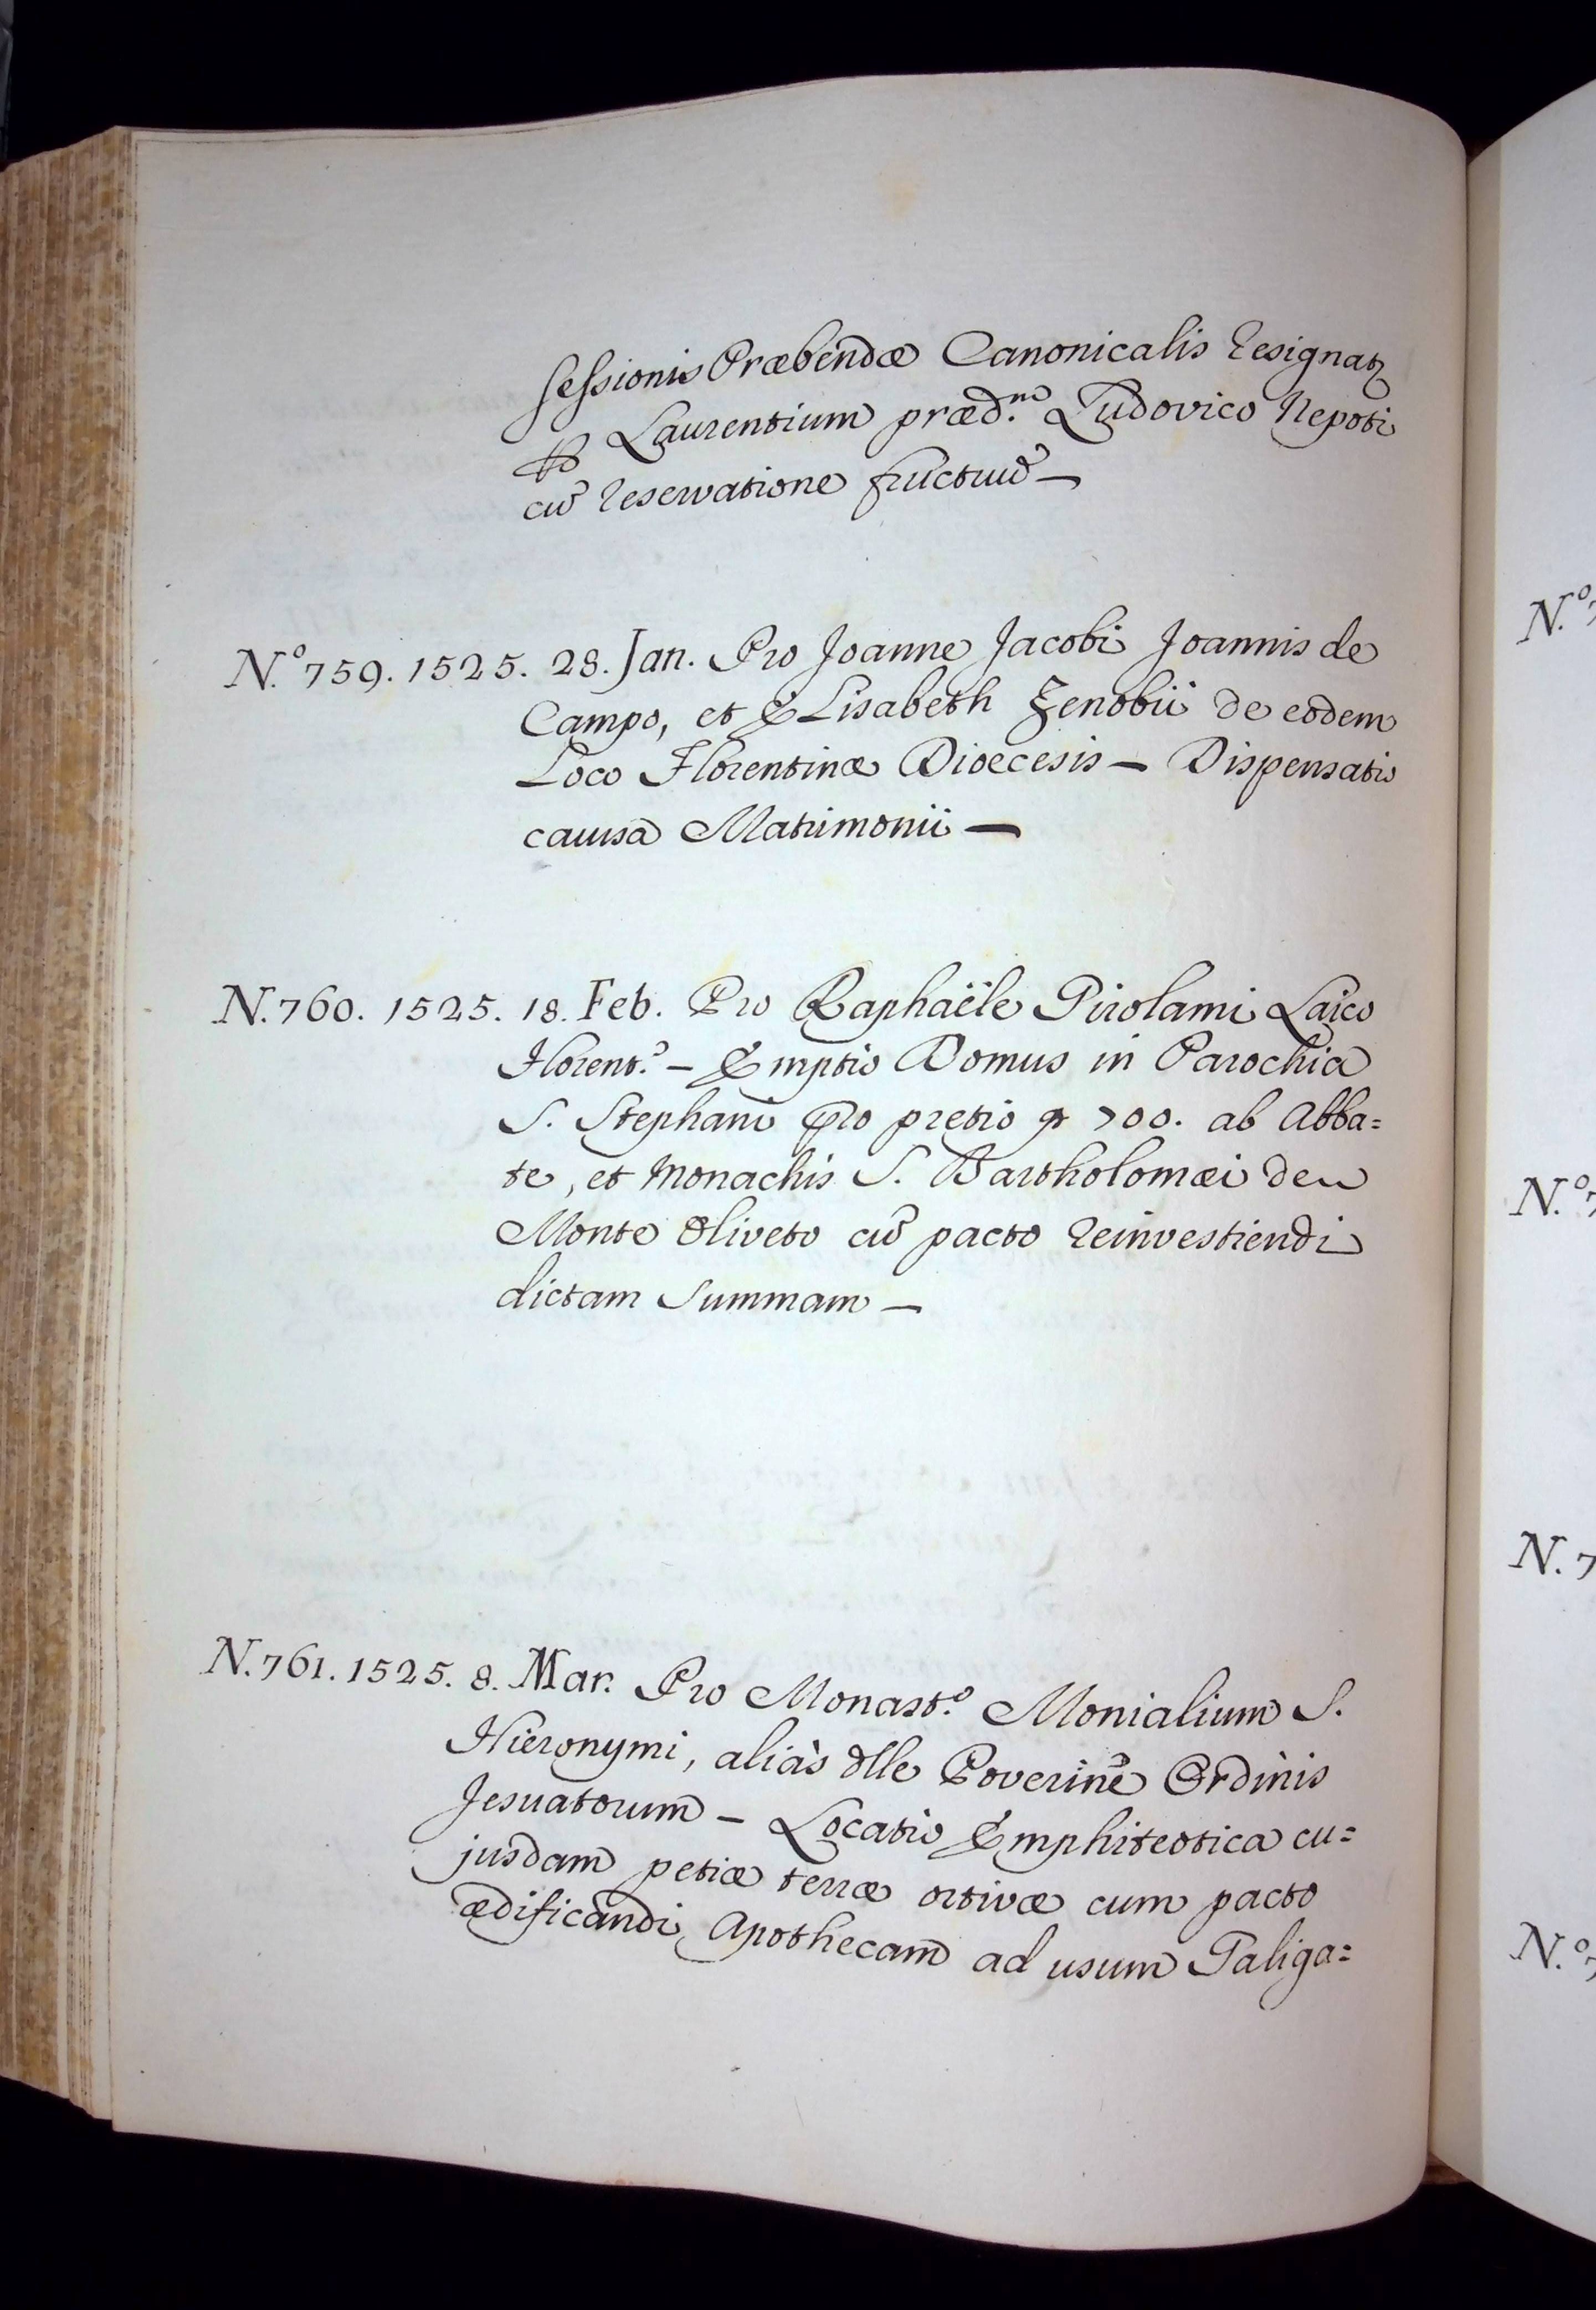 sessionis Præbendæ Canonicalis Resignatæ
per Laurentium præd.m Ludovico Nepoti
cũ reservatione fructuũ —
N.º 759. 1525. 28. Jan. Pro Joanne Jacobi Joannis de
Campo, et Elisabeth Zenobii de eodem
Loco Florentinæ Dioecesis — Dispensatio
causa Matrimonii —
N. 760. 1525. 18. Feb. Pro Raphaële Girolami Laico
Florent.º — Emptio Domus in Parochia
S. Stephani pro pretio 700. ab Abba=
te, et Monachis S. Bartholomæi de
Monte Oliveto cũ pacto reinvestiendi
dictam Summam —
N. 761. 1525. 8. Mar. Pro Monast.º Monialium S.
Hieronymi, aliàs dlle Poverine Ordinis
Jesuatorum — Locatio Emphiteotica cu=
jusdam petiæ terræ ortivæ cum pacto
ædificandi Apothecam ad usum Galiga=
N.º 7
N.º 7
N. 7
N.º 7